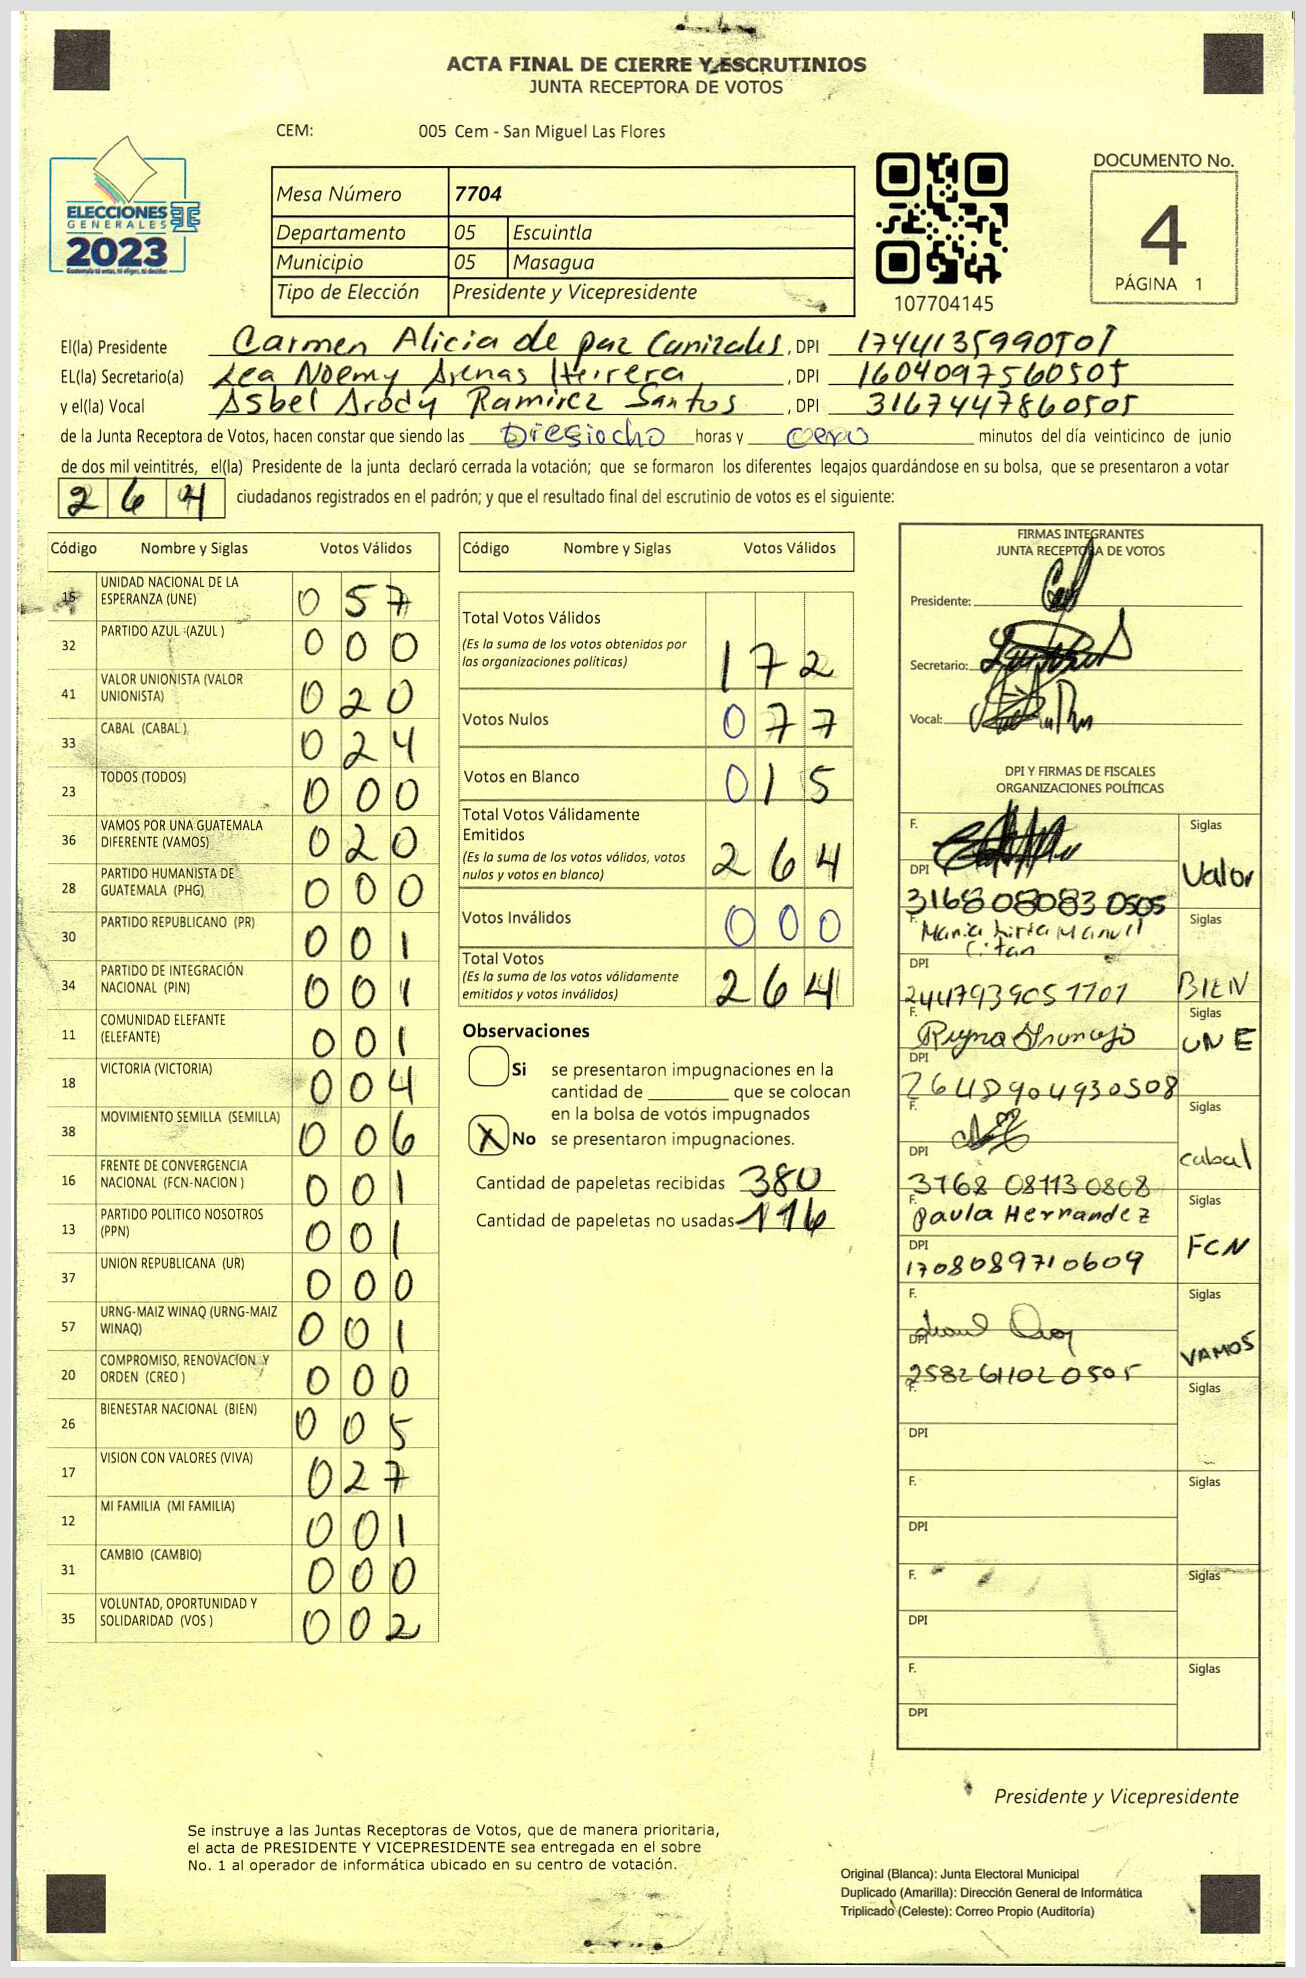 ACTA FINAL DE CIERRE Y ESCRUTINIOS
JUNTA RECEPTORA DE VOTOS
CEM: 005 Cem - San Miguel Las Flores
ELECCIONES
GENERALES
2023
Guatemala tú votas, tú eliges, tú decides
Mesa Número 7704
Departamento 05 Escuintla
Municipio 05 Masagua
Tipo de Elección Presidente y Vicepresidente
107704145
DOCUMENTO No.
4
PÁGINA 1
El(la) Presidente Carmen Alicia de paz Canizales, DPI 1744135990501
EL(la) Secretario(a) Lea Noemy Arenas Herrera, DPI 1604097560505
y el(la) Vocal Asbel Arody Ramirez Santos, DPI 3167447860505
de la Junta Receptora de Votos, hacen constar que siendo las Diesiocho horas y cero minutos del día veinticinco de junio
de dos mil veintitrés, el(la) Presidente de la junta declaró cerrada la votación; que se formaron los diferentes legajos guardándose en su bolsa, que se presentaron a votar
264 ciudadanos registrados en el padrón; y que el resultado final del escrutinio de votos es el siguiente:
Código Nombre y Siglas Votos Válidos
15 UNIDAD NACIONAL DE LA ESPERANZA (UNE) 057
32 PARTIDO AZUL (AZUL ) 000
41 VALOR UNIONISTA (VALOR UNIONISTA) 020
33 CABAL (CABAL ) 024
23 TODOS (TODOS) 000
36 VAMOS POR UNA GUATEMALA DIFERENTE (VAMOS) 020
28 PARTIDO HUMANISTA DE GUATEMALA (PHG) 000
30 PARTIDO REPUBLICANO (PR) 001
34 PARTIDO DE INTEGRACIÓN NACIONAL (PIN) 001
11 COMUNIDAD ELEFANTE (ELEFANTE) 001
18 VICTORIA (VICTORIA) 004
38 MOVIMIENTO SEMILLA (SEMILLA) 006
16 FRENTE DE CONVERGENCIA NACIONAL (FCN-NACION ) 001
13 PARTIDO POLITICO NOSOTROS (PPN) 001
37 UNION REPUBLICANA (UR) 000
57 URNG-MAIZ WINAQ (URNG-MAIZ WINAQ) 001
20 COMPROMISO, RENOVACION Y ORDEN (CREO ) 000
26 BIENESTAR NACIONAL (BIEN) 005
17 VISION CON VALORES (VIVA) 027
12 MI FAMILIA (MI FAMILIA) 001
31 CAMBIO (CAMBIO) 000
35 VOLUNTAD, OPORTUNIDAD Y SOLIDARIDAD (VOS ) 002
Código Nombre y Siglas Votos Válidos
Total Votos Válidos
(Es la suma de los votos obtenidos por
las organizaciones políticas) 172
Votos Nulos 077
Votos en Blanco 015
Total Votos Válidamente
Emitidos
(Es la suma de los votos válidos, votos
nulos y votos en blanco) 264
Votos Inválidos 000
Total Votos
(Es la suma de los votos válidamente
emitidos y votos inválidos) 264
Observaciones
Si se presentaron impugnaciones en la
cantidad de ________ que se colocan
en la bolsa de votos impugnados
X No se presentaron impugnaciones.
Cantidad de papeletas recibidas 380
Cantidad de papeletas no usadas 116
FIRMAS INTEGRANTES
JUNTA RECEPTORA DE VOTOS
Presidente:
Secretario:
Vocal:
DPI Y FIRMAS DE FISCALES
ORGANIZACIONES POLÍTICAS
F. Siglas
DPI Valor
3168080830505
F. Maria Manuel Siglas
Citan
DPI
2447939051101 BIEN
F. Reyna Siglas
DPI UNE
2648904930508
F. Siglas
DPI cabal
3168081130808
F. Paula Hernandez Siglas
DPI FCN
1708089710609
F. Siglas
DPI VAMOS
2582611020505
F. Siglas
DPI
F. Siglas
DPI
F. Siglas
DPI
F. Siglas
DPI
Presidente y Vicepresidente
Se instruye a las Juntas Receptoras de Votos, que de manera prioritaria,
el acta de PRESIDENTE Y VICEPRESIDENTE sea entregada en el sobre
No. 1 al operador de informática ubicado en su centro de votación.
Original (Blanca): Junta Electoral Municipal
Duplicado (Amarilla): Dirección General de Informática
Triplicado (Celeste): Correo Propio (Auditoría)